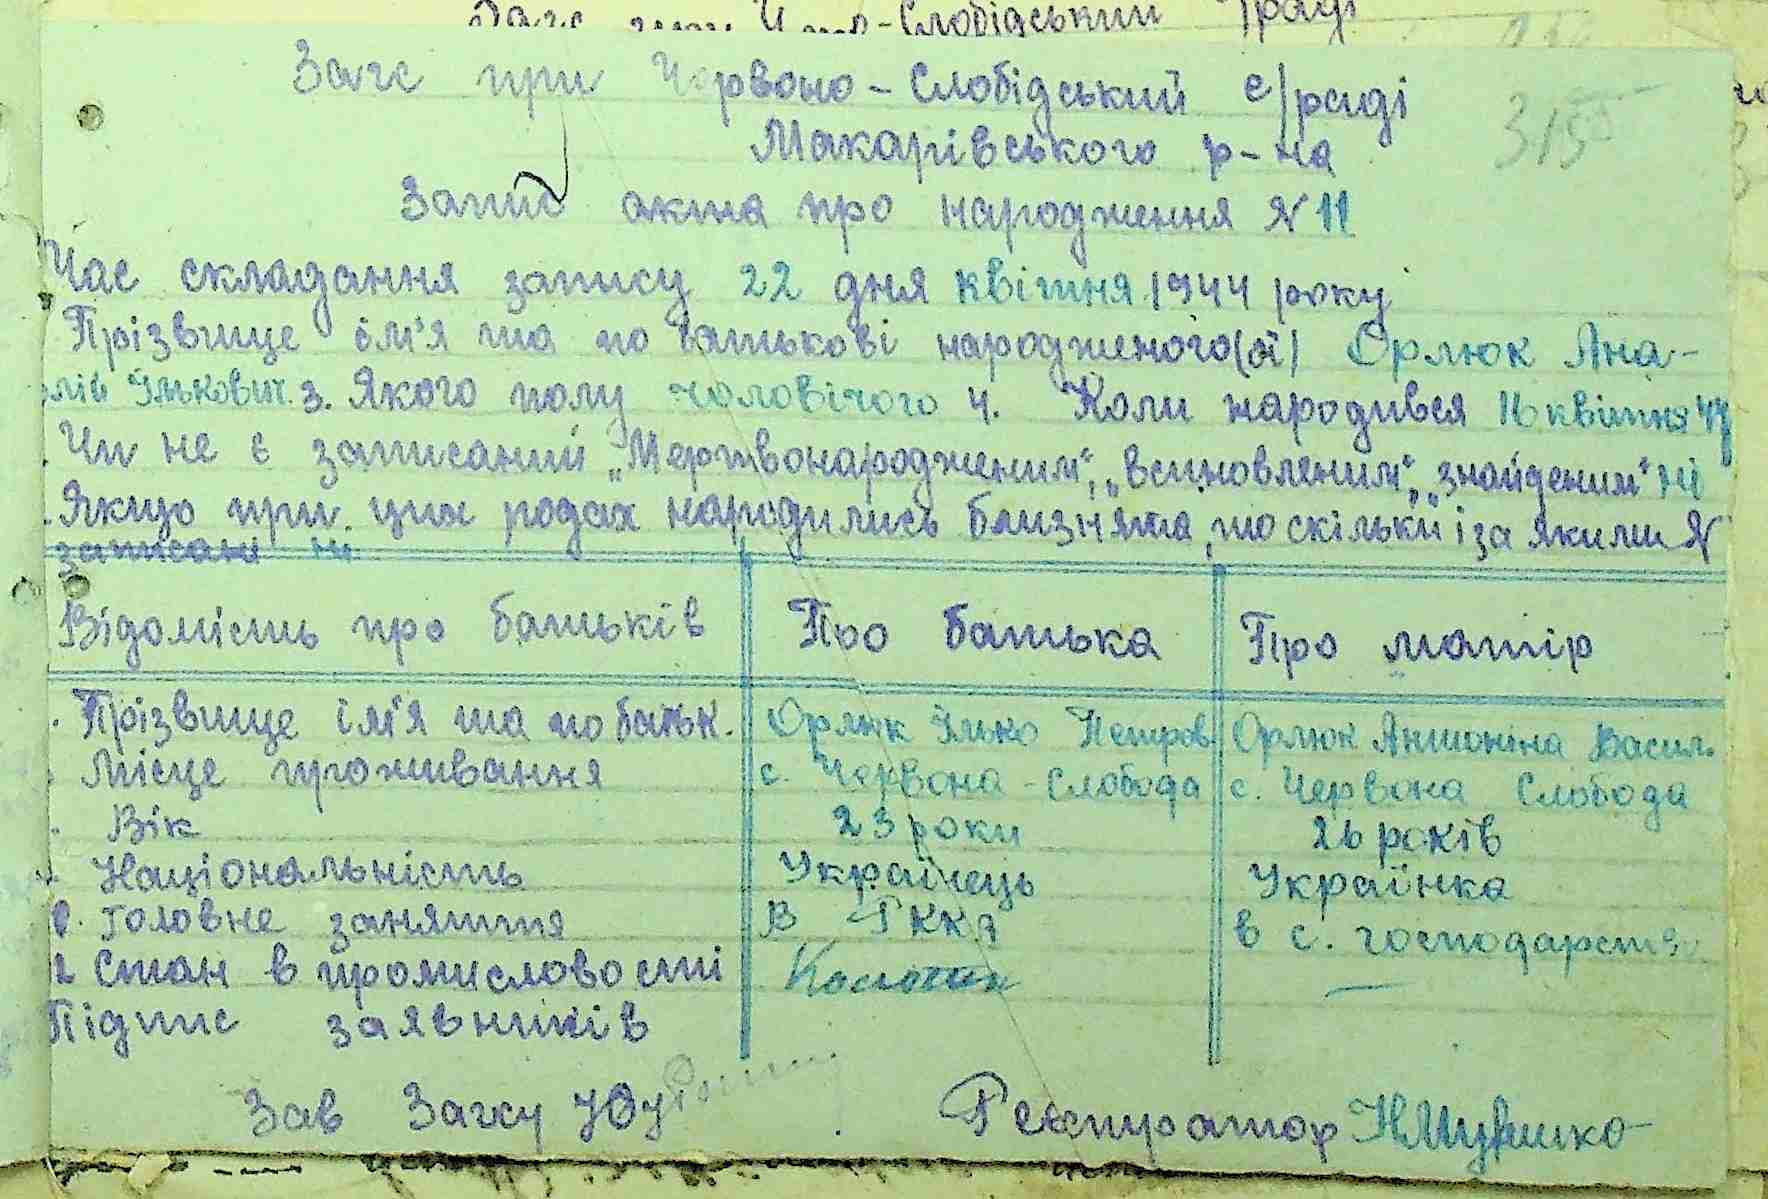 Слобідський раді
Загс при Червоно-Слобідський с/раді
315
Макарівського р-на
Запис акта про народження N 11
Час складання запису 22 дня квітня 1944 року
Прізвище ім'я та по батькові народженого(ої) Орлюк Ана-
олій Ількович. 3. Якого полу чоловічого 4. Коли народився 16 квітня 44
Чи не є записаний „Мертвонародженим", „всиновленим", „знайденим" ні
Якщо при цих родах народились близнята, то скільки і за якими N
записані ні
Відомість про батьків Про батька Про матір
Прізвище ім'я та по батьк. Орлюк Ілько Петров Орлюк Антоніна Васил.
Місце проживання с. Червона-Слобода с. Червона Слобода
Вік 23 роки 26 років
Національність Українець Українка
Головне заняття В РККА в с. господарстві
2 Стан в промисловості —
Підпис заявників
Зав Загсу Реєстратор